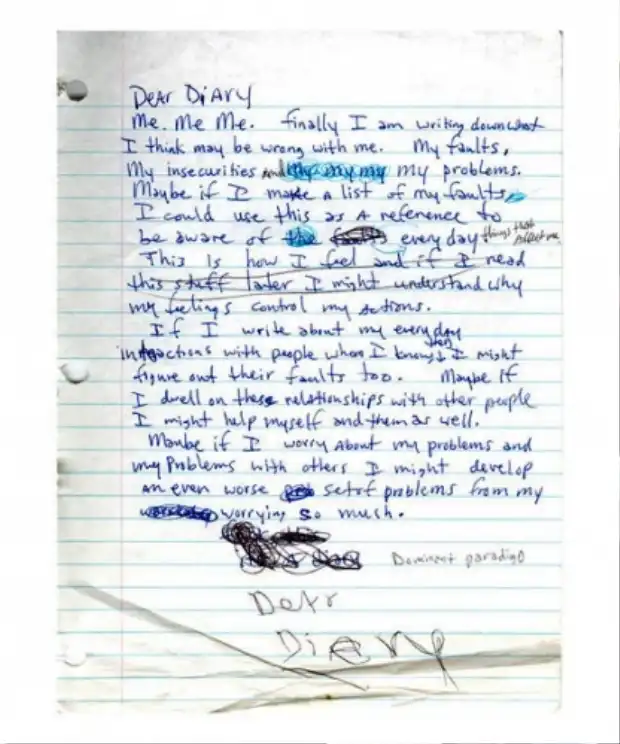 Dear Diary
Me. Me Me. finally I am writing down what
I think may be wrong with me. My faults,
My insecurities and my my my my problems.
Maybe if I make a list of my faults
I could use this as a reference to
be aware of the faults every day things that Affect me.
This is how I feel and if I read
this stuff later I might understand why
my feelings control my actions.
If I write about my every day
interactions with people whom I know, I might
figure out their faults too. Maybe if
I dwell on these relationships with other people
I might help myself and them as well.
Maybe if I worry About my problems and
my Problems with others I might develop
an even worse set of problems from my
worrying so much.
Dominent paradigm
Dear
Diary